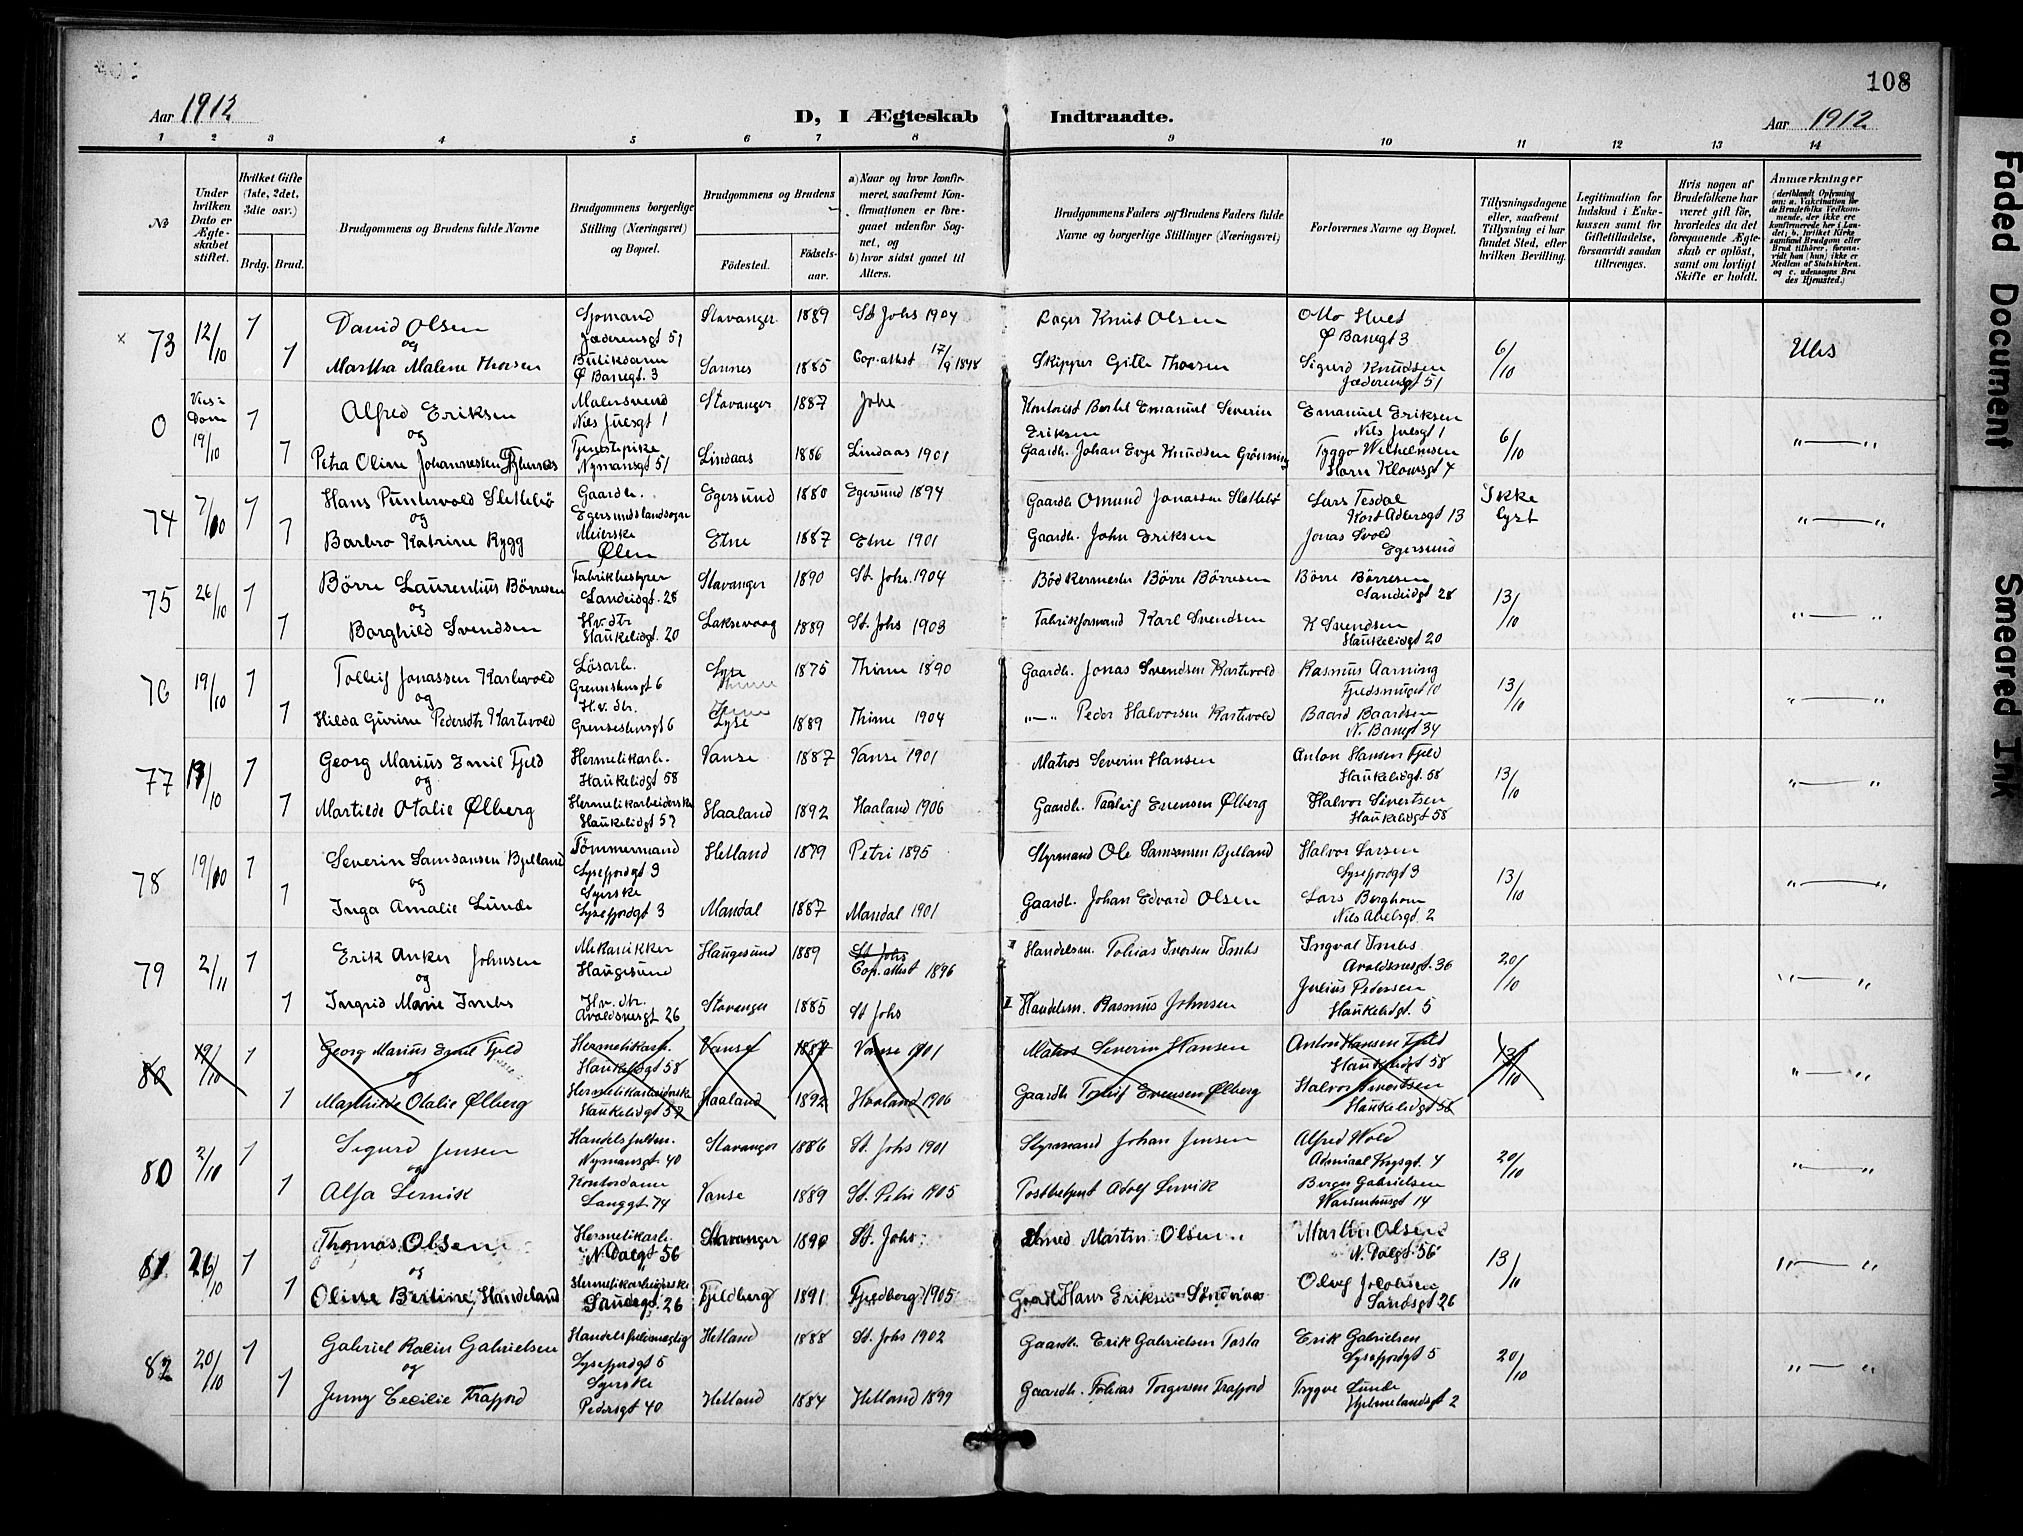 108
Aar 1912
D, I Ægteskab Indtraadte.
Aar 1912
1 2 3 4 5 6 7 8 9 10 11 12 13 14
No
Under hvilken Dato er Ægteskabet stiftet.
Hvilket Gifte (1ste, 2det, 3die osv.)
Brdg. Brud.
Brudgommens og Brudens fulde Navne
Brudgommens borgerlige Stilling (Næringsvei) og Bopæl.
Brudgommens og Brudens
Fødested.
Fødselsaar.
a) Naar og hvor konfirmeret, saafremt Konfirmationen er foregaaet udenfor Sognet, og
b) hvor sidst gaaet til Alters.
Brudgommens Faders og Brudens Faders fulde Navne og borgerlige Stillinger (Næringsvei)
Forlovernes Navne og Bopæl.
Tillysningsdagene eller, saafremt Tillysning ei har fundet Sted, efter hvilken Bevilling.
Legitimation for Indskud i Enkekassen samt for Giftetilladelse, forsaavidt saadan tiltrænges.
Hvis nogen af Brudefolkene har været gift før, hvorledes da det foregaaende Ægteskab er opløst, samt om lovligt Skifte er holdt.
Anmærkninger
(deriblandt Oplysning om: a. Vakcination for de Brudefolks Vedkommende, der ikke ere konfirmerede her i Landet; b. hvilket Kirkesamfund Brudgom eller Brud tilhører, forsaavidt han (hun) ikke er Medlem af Statskirken, og c. udensogns Brudes Hjemsted.)
73 12/10 1 David Olsen Sjømand Stavanger 1889 St Johs 1904 Knut Olsen Otto
og Jæderensgt 51 Ø Banegt 3
1 Martha Malene Thorsen Butikdame Sannes 1885 Cop. attest 17/9 Skipper Gitle Thorsen Sigurd Knudsen 6/10
Ø Banegt. 3 Jæderensgt 51
0 19/10 1 Alfred Eriksen Malersvend Stavanger 1887 Johs Kontorist Bertel Emanuel Severin Emanuel Eriksen
og Nils Juelsgt 1 Eriksen Nils Juelsgt 1
1 Petra Oline Johannessen Tjenestepike Lindaas 1886 Lindaas 1901 Gaardb. Johan Knudsen Wilhelmsen 6/10
Nymansgt 51 4
74 7/10 1 Hans Puntervold Slettebø Gaardb. Egersund 1880 Egersund 1894 Gaardb Omund Jonassen Slettebø Lars Tesdal Ikke lyst
og Egersunds landsogn Kort Adlersgt 13
1 Barbro Katrine Rygg Meierske Etne 1887 Etne 1901 Gaardb. John Eriksen Jonas
Ølen Egersund
75 26/10 1 Børre Laurentius Børresen Fabrikbestyrer Stavanger 1890 St Johs. 1904 Bødkermester Børre Børresen Børre Børresen
og Sandeidgt. 28 Sandeidgt 28
1 Borghild Svendsen Hv. dtr Laksevaag 1889 St. Johs 1903 Fabrikformand Karl Svendsen K Svendsen 13/10
Haukelidgt. 20 Haukelidgt 20
76 19/10 1 Tolleif Jonassen Kartevold Løsarb. Lyse 1875 Thime 1890 Gaardb. Jonas Svendsen Kartevold Rasmus Aarning
og Grensehusgt 6 10
1 Hilda Gurine Pedersdtr Kartevold Hv. dtr. Lyse 1889 Thime 1904 „—„ Peder Halvorsen Kartevold Baard Baardsen 13/10
Grensehusgt 6 N. Banegt 34
77 19/10 1 Georg Marius Emil Fjeld Hermetikarb. Vanse 1887 Vanse 1901 Matros Severin Hansen Anton Hansen Fjeld
og Haukelidgt 58 Haukelidgt. 58
1 Martilde Otalie Ølberg Hermetikarbeiderske Haaland 1892 Haaland 1906 Gaardb. Torleif Evensen Ølberg Halvor Sivertsen 13/10
Haukelidgt 57 Haukelidgt 58
78 19/10 1 Severin Samsonsen Bjelland Tømmermand Hetland 1879 Petri 1895 Styrmand Ole Samsonsen Bjelland Halvor Larsen
og Lysefjordgt 3 Lysefjordgt 3
1 Inga Amalie Lunde Syerske Mandal 1887 Mandal 1901 Gaardb. Johan Edvard Olsen Lars Berghom 13/10
Lysefjordgt 3 Nils Abelsgt. 2
79 2/11 1 Erik Anker Johnsen Mekanikker Haugesund 1889 St Johs Handelsm. Tobias Iversen Imbs Ingval Imbs
og Haugesund Cop. attest 1896 Avaldsnesgt. 36
1 Ingrid Marie Imbs Hv. dtr. Stavanger 1885 St Johs Handelsm. Rasmus Johnsen Julius Pedersen 20/10
Avaldsnesgt 26 Haukelidgt. 5
80 19/10 1 Georg Marius Emil Fjeld Hermetikarb. Vanse 1887 Vanse 1901 Matros Severin Hansen Anton Hansen Fjeld
og Haukelidgt 58 Haukelidgt 58
1 Mathilde Otalie Ølberg Hermetikarbeiderske Haaland 1892 Haaland 1906 Gaardb Torleif Evensen Ølberg Halvor Sivertsen 13/10
Haukelidgt 57 Haukelidgt 58
80 2/10 1 Sigurd Jensen Handelsfuldm. Stavanger 1886 St. Johs 1901 Styrmand Johan Jensen Alfred Wold
og Nymansgt. 40 Admiral Krysgt. 4
1 Alfa Servik Kontordame Vanse 1889 St. Petri 1905 Postbetjent Adolf Servik Berger Gabrielsen 20/10
Langgt 74 Waisenhusgt 14
81 26/10 1 Thomas Olsen Hermetikarb. Stavanger 1890 St. Johs Martin Olsen Martin Olsen
og N. Dalgt 56 N. Dalgt 56
1 Oline Bertine Handeland Hermetikarbeiderske Fjeldberg 1891 Fjeldberg 1905 Gaardb Hans Eriksen Oluf Jacobsen 13/10
26 Sandsgt 26
82 20/10 1 Gabriel Racin Gabrielsen Handelsfuldmægtig Hetland 1888 St. Johs 1902 Gaardb. Erik Gabrielsen Tasta Erik Gabrielsen
og Lysefjordgt 5 Lysefjordgt 5
1 Jenny Cecilie Frafjord Syerske Hetland 1884 Hetland 1899 Gaardb. Tobias Torgersen Frafjord Trygve Lunde 20/10
Pedersgt 40 Hjelmelandsgt 2
Faded Document
Smeared Ink